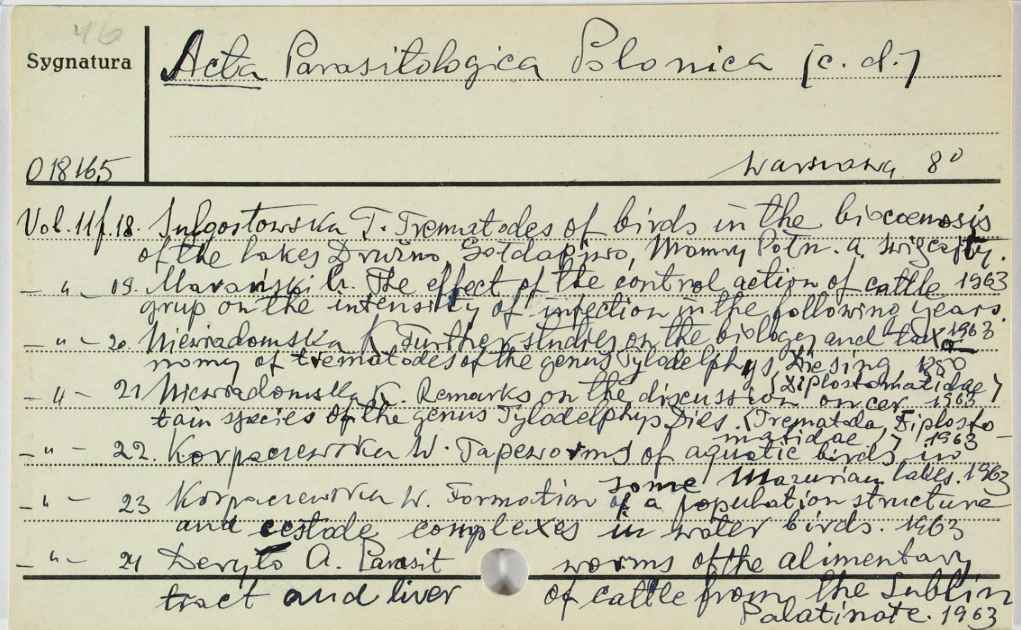 46
Sygnatura
Acta Parasitologica Polonica (c. d.)
018165
Warszawa, 8°
Vol. 11 f. 18. Sulgostowska T. Trematodes of birds in the biocoenosis
of the lakes Drużno, Gołdapiwo, Mamry Półn. a. Święcajty.
– " – 19. Marański C. The effect of the control action of cattle 1963
grup on the intensity of infection in the following years.
– " – 20. Niewiadomska K. Further studies on the biology and taxo- 1963
nomy of trematodes of the genus Tylodelphys Diesing 1850
(Diplostomatidae)
– " – 21 Niewiadomska K. Remarks on the discussion on cer- 1963
tain species of the genus Tylodelphys Dies. (Trematoda, Diplosto-
matidae) 1963
– " – 22. Korpaczewska W. Tapeworms of aquatic birds in
some Mazurian lakes. 1963
" – 23 Korpaczewska W. Formation of a population structure
and cestode complexes in water birds. 1963
– " – 24 Deryło A. Parasit worms of the alimentary
tract and liver of cattle from the Lublin
Palatinate. 1963